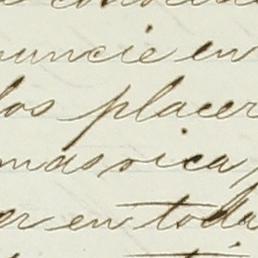 nuncie en
los placer
mas rica,
ar en toda